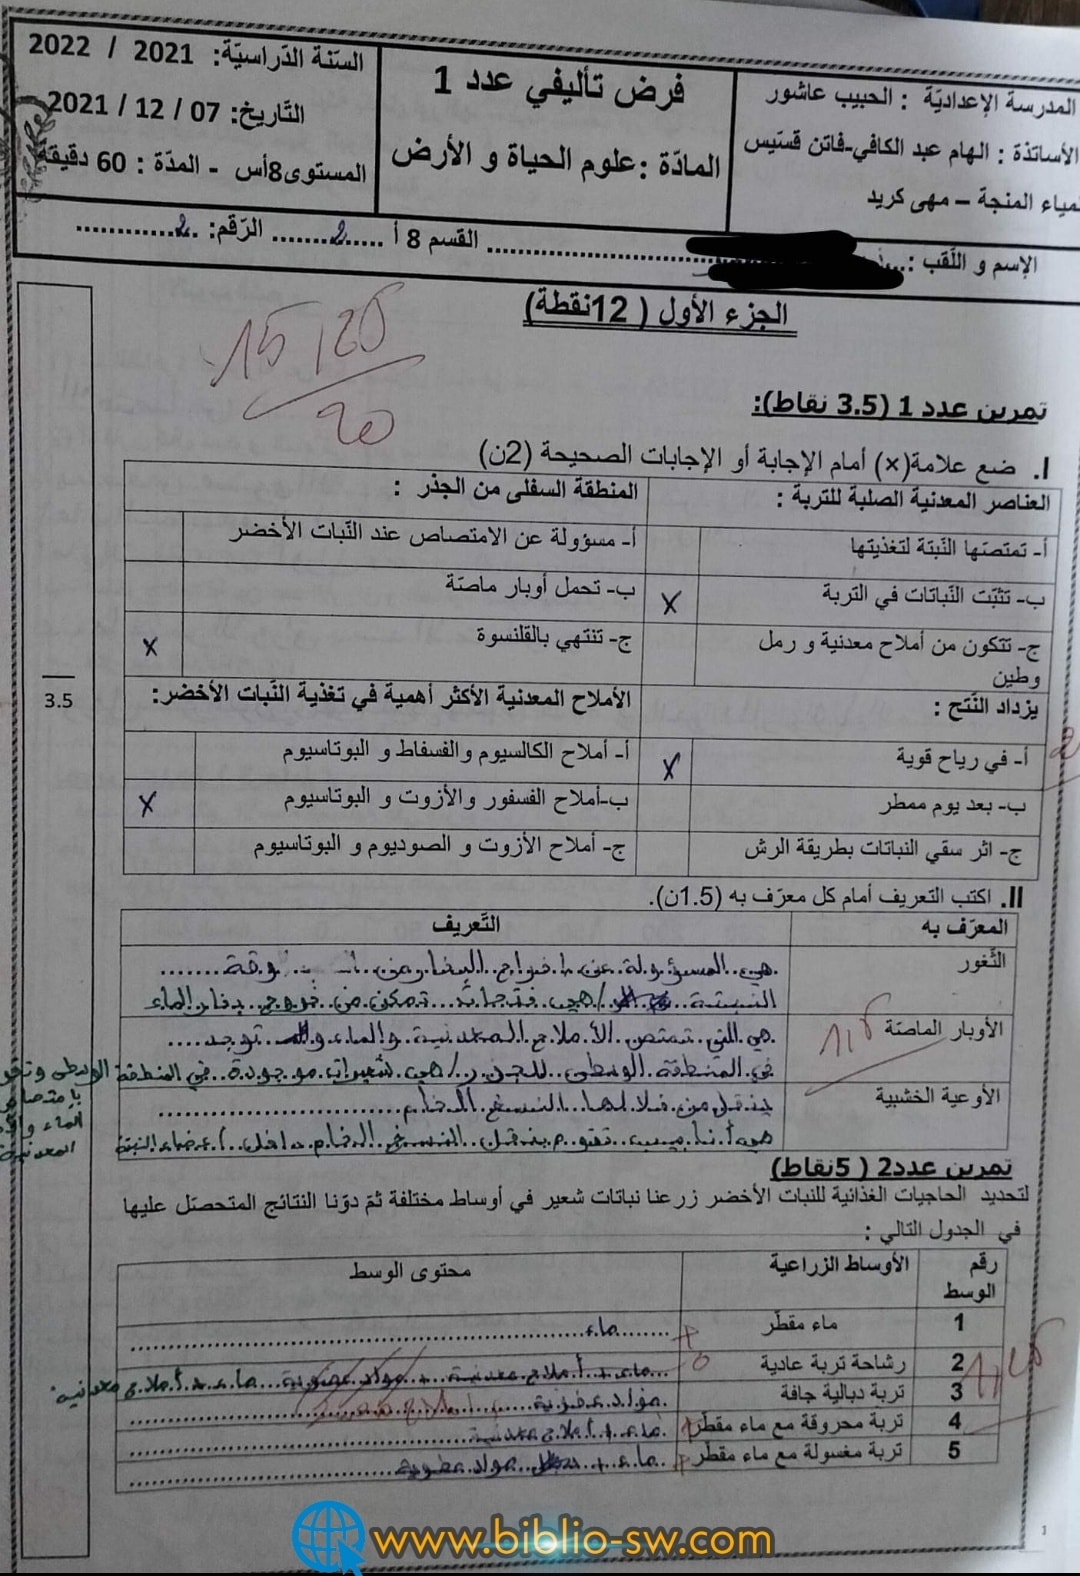 المدرسة الإعداديّة : الحبيب عاشور
الأساتذة : الهام عبد الكافي-فاتن قسّيس
لمياء المنجة – مهى كريد
فرض تأليفي عدد 1
المادّة :علوم الحياة و الأرض
السّنة الدّراسيّة: 2021 / 2022
التّاريخ: 07 / 12 / 2021
المستوى8أس - المدّة : 60 دقيقة
الإسم و اللّقب :.......... القسم 8 أ .....2........ الرّقم: ..2.............
الجزء الأول ( 12نقطة)
15,25
20
تمرين عدد 1 (3.5 نقاط):
I. ضع علامة(×) أمام الإجابة أو الإجابات الصحيحة (2ن)
العناصر المعدنية الصلبة للتربة :
أ- تمتصّها النّبتة لتغذيتها
ب- تثبّت النّباتات في التربة X
ج- تتكون من أملاح معدنية و رمل
وطين
المنطقة السفلى من الجذر :
أ- مسؤولة عن الامتصاص عند النّبات الأخضر
ب- تحمل أوبار ماصّة
ج- تنتهي بالقلنسوة X
يزداد النّتح :
أ- في رياح قوية X
ب- بعد يوم ممطر
ج- اثر سقي النباتات بطريقة الرش
الأملاح المعدنية الأكثر أهمية في تغذية النّبات الأخضر:
أ- أملاح الكالسيوم والفسفاط و البوتاسيوم
ب-أملاح الفسفور والأزوت و البوتاسيوم X
ج- أملاح الأزوت و الصوديوم و البوتاسيوم
3.5
2
II. اكتب التعريف أمام كل معرّف به (1.5ن).
المعرّف به التّعريف
الثّغور
هي المسؤولة عن اخراج البخار من
النبتة / هي فتحات تمكن من خروج بخار الماء
الأوبار الماصّة
هي التي تمتص الأملاح المعدنية والماء توجد
في المنطقة الوسطى للجذر / هي شعيرات موجودة في المنطقة الوسطى وتقوم
بامتصاص
الماء
المعدنية
الأوعية الخشبية
ينقل من خلالها النسغ الخام
هي أنابيب تقوم بنقل النسغ الخام داخل أعضاء النبتة
1,5
تمرين عدد2 ( 5نقاط)
لتحديد الحاجيات الغذائية للنبات الأخضر زرعنا نباتات شعير في أوساط مختلفة ثمّ دوّنا النتائج المتحصّل عليها
في الجدول التالي :
رقم الوسط الأوساط الزراعية محتوى الوسط
1 ماء مقطّر ماء
2 رشاحة تربة عادية ماء + أملاح معدنية + مواد عضوية ماء + أملاح معدنية
3 تربة دبالية جافة مواد عضوية
4 تربة محروقة مع ماء مقطّر ماء + أملاح معدنية
5 تربة مغسولة مع ماء مقطّر ماء + مواد عضوية
1,25
www.biblio-sw.com
1